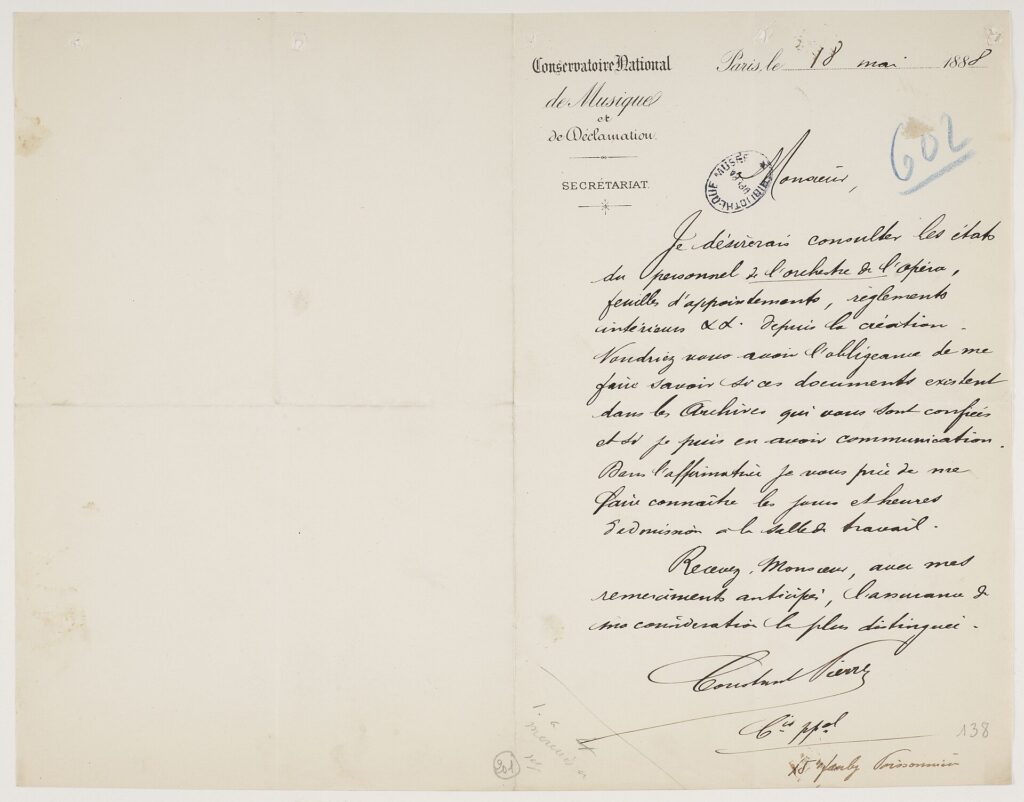 Conservatoire National
de Musique
et
de Déclamation.
SECRÉTARIAT.
Paris, le 18 mai 1888
602
BIBLIOTHÈQUE MUSÉE
Monsieur,
Je désirerais consulter les états
du personnel de l'orchestre de l'opéra,
feuilles d'appointements, règlements
intérieurs &&. depuis la création.
Voudriez vous avoir l'obligeance de me
faire savoir si ces documents existent
dans les Archives qui vous sont confiées
et si je puis en avoir communication.
Dans l'affirmative je vous prie de me
faire connaître les jours et heures
d'admission à la salle de travail.
Recevez, Monsieur, avec mes
remerciments anticipés, l'assurance de
ma considération la plus distinguée.
Constant Pierre
Cis ppal
138
fauby Poissonnière
201